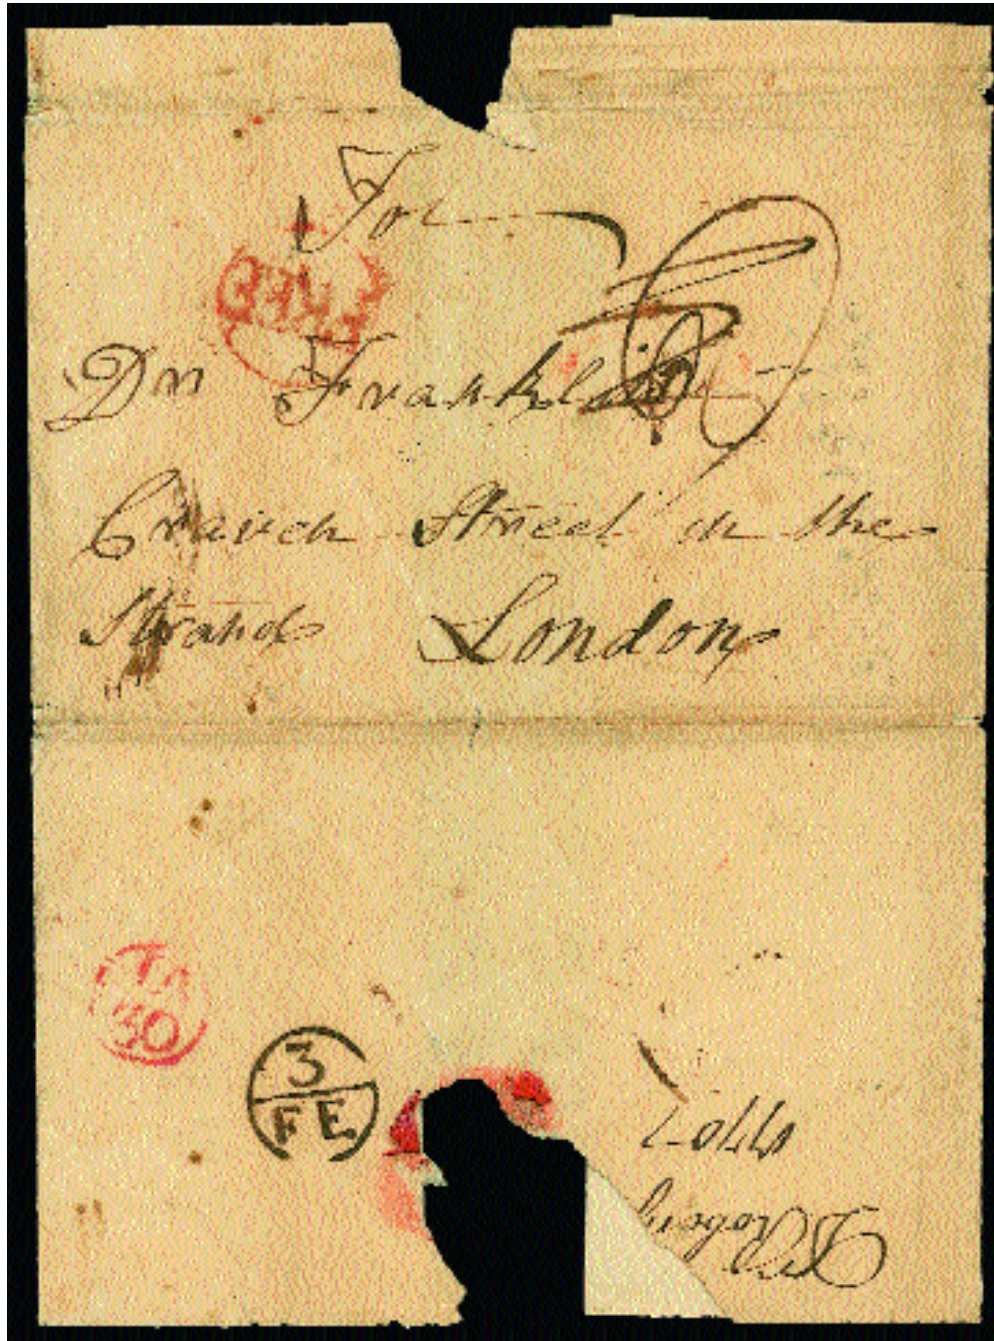 For
Dr Franklin
Craven Street in the
Strand London
FREE
JA
30
3
FE